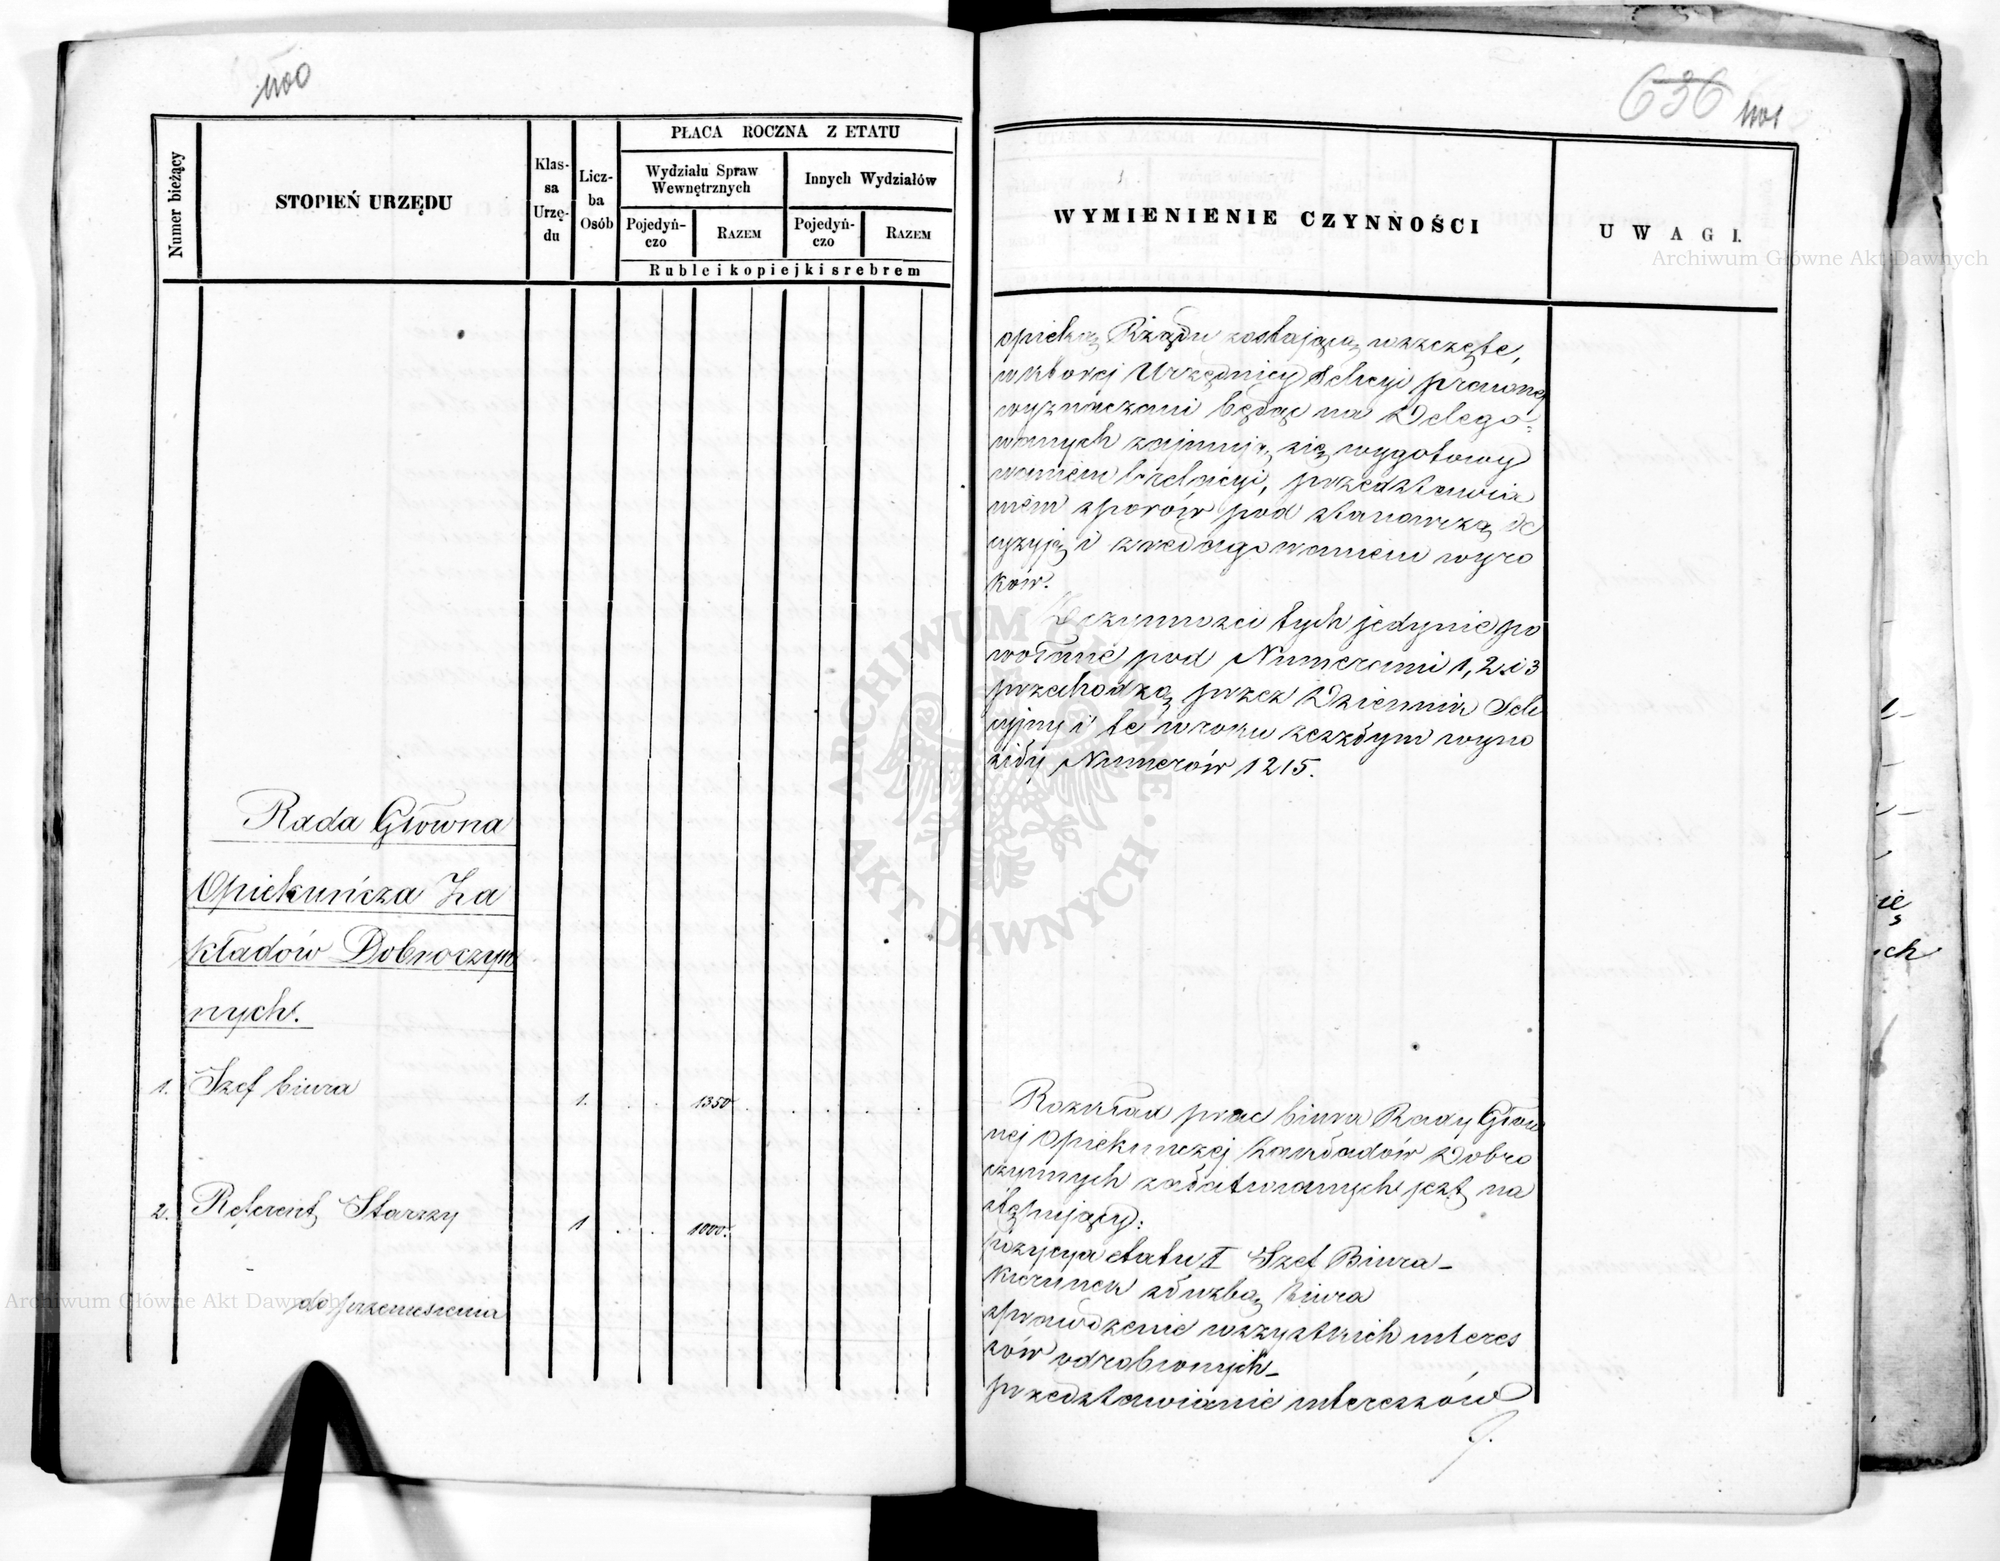 1100
Numer bieżący
STOPIEŃ URZĘDU
Klas-
sa
Urzę-
du
Licz-
ba
Osób
PŁACA ROCZNA Z ETATU
Wydziału Spraw
Wewnętrznych
Innych Wydziałów
Pojedyń-
czo
RAZEM
Pojedyń-
czo
RAZEM
Ruble i kopiejki srebrem
Rada Główna
Opiekuńcza Za
kładów Dobroczyn
nych.
1. Szef biura 1. 1350
2. Referent Starszy 1 1000.
do przeniesienia
636 1101
WYMIENIENIE CZYNNOŚCI
UWAGI.
opieką Rządu zostającą wszczęte,
w której Urzędnicy Sekcyi prawnej
wyznaczani będąc na Delego=
wanych zajmują się wygotowy
waniem relacyi, przedstawia
niem sporów pod stanowczą de
cyzyją i zredagowaniem wyro
ków.
Z czynności tych jedynie po
wołane pod Numerami 1, 2 i 3
przechodzą przez Dziennik Sek
cyjny i te w roku zeszłym wyno
siły Numerów 1215.
Rozkład prac biura Rady Głów
nej Opiekunczej Zakładów Dobro
czynnych załatwianych jest na
stępujący:
pozycya etatu I Szef Biura -
kierunek służbą Biura
sprawdzenie wszystkich interes
sów odrobionych -
przedstawianie interessów
ię
ch
ARCHIWUM GŁÓWNE AKT DAWNYCH
Archiwum Główne Akt Dawnych
Archiwum Główne Akt Dawnych